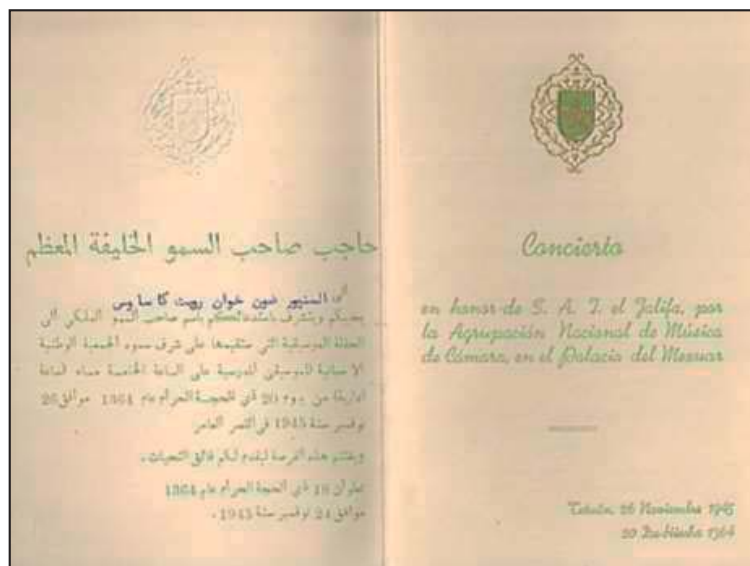 حاجب صاحب السمو الخليفة المعظم
الى السنيور ضون خوان رويث كاساوس
يحييكم ويتشرف باستدعائكم باسم صاحب السمو الملكي الى
الحفلة الموسيقية التي ستقيمها على شرف سموه الجمعية الوطنية
الاسبانية للموسيقى على الساعة الخامسة مساء
من يوم 20 ذي الحجة الحرام عام 1364 موافق 26
نوفمبر سنة 1945 في القصر العامر
ويغتنم هذه الفرصة ليقدم لكم فائق التحيات.
تطوان 18 ذي الحجة الحرام عام 1364
موافق 24 نوفمبر سنة 1945.
Concierto
en honor de S. A. I. el Jalifa, por
la Agrupación Nacional de Música
de Cámara, en el Palacio del Mexuar
Tetuán, 26 Noviembre 1945
20 1364